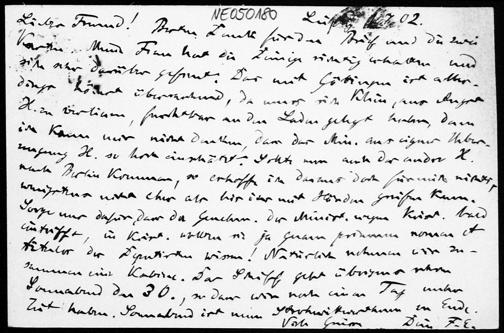 NE050180
Lieber Freund! Besten Dank für den Brief und die zwei
Karten. Meine Frau hat die Einige richtig erhalten und
sich sehr darüber gefreut. Das mit Göttingen ist aller-
dings höchst überraschend, da muss sich Klein, aus Angst
H. zu verlieren, furchtbar an den Laden gelegt haben, denn
ich kann mir nicht denken, dass das Min. aus eigner Ueber-
zeugung H. so hoch einschätzt. Sollte nun auch der andere H.
nach Berlin kommen, so erhoffe ich daraus doch für mich nichts,
wenigstens nicht eher als bis ich es mit Händen greifen kann.
Sorge nur dafür dass die Genehm. des Minist. wegen Krist. bald
eintrifft, in Krist. wollen sie ja genau nomen et
titulos der Deputirten wissen! Natürlich nehmen wir zu-
sammen eine Kabine. Das Schiff geht übrigens schon
Sonnabend den 30., so dass wir noch einen Tag
Zeit haben. Sonnabend ist mein zu Ende.
Viele Grüsse Dein F. E.